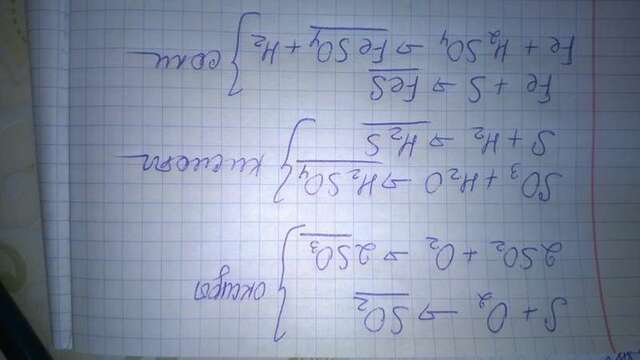 S + O₂ → SO₂
2SO₂ + O₂ → 2SO₃ } оксиды
SO₃ + H₂O → H₂SO₄
S + H₂ → H₂S } кислота
Fe + S → FeS
Fe + H₂SO₄ → FeSO₄ + H₂ } соли